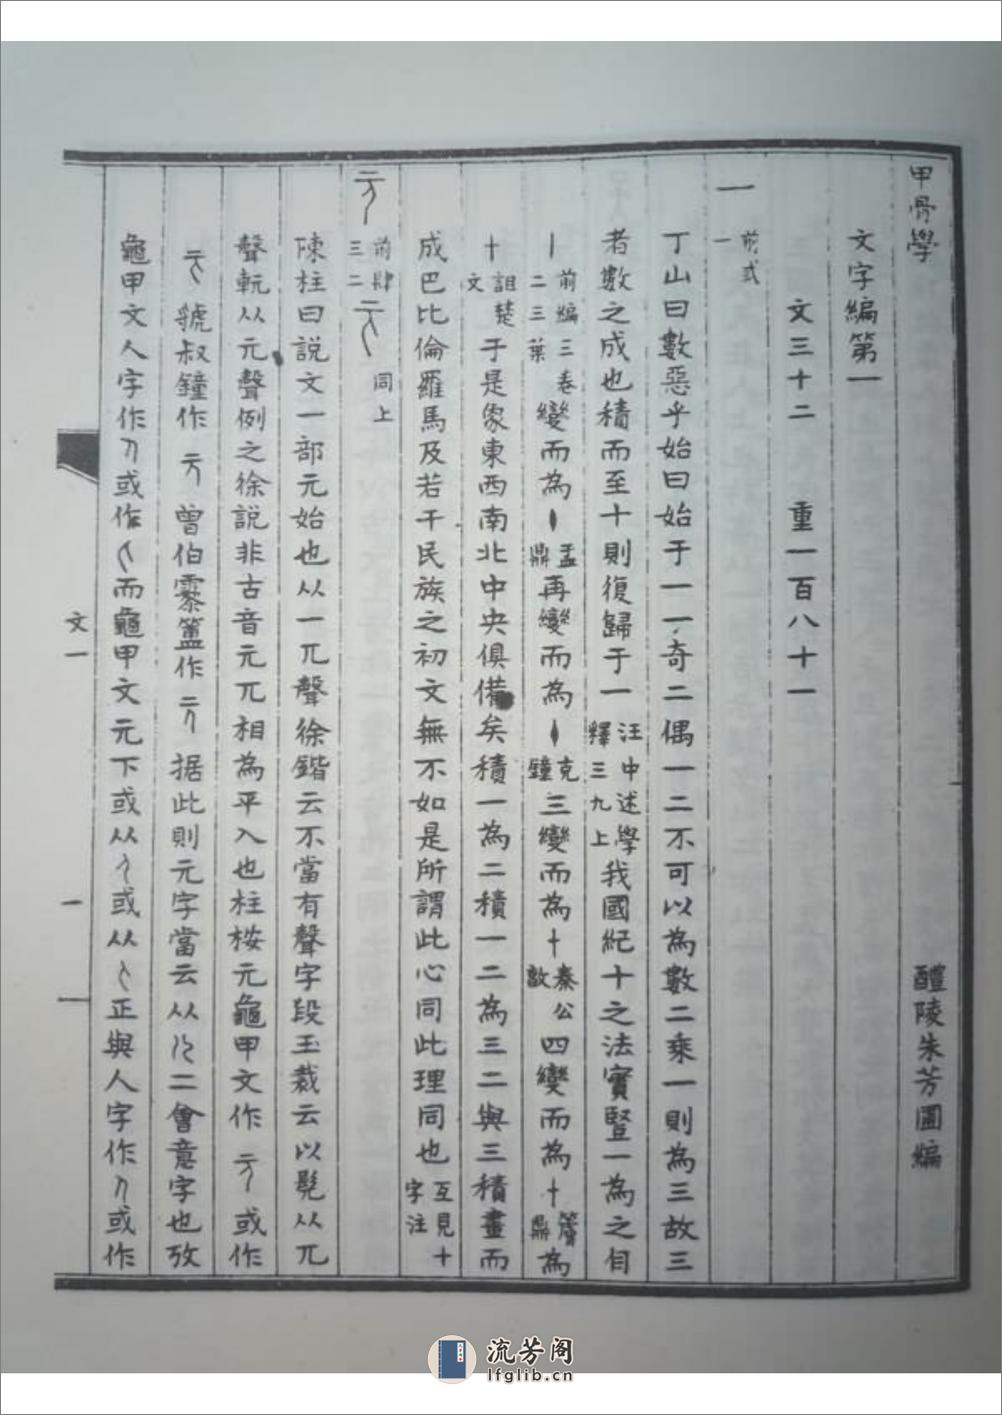 甲骨學
文字編第一 醴陵朱芳圃編
文三十二 重一百八十一
一 前弍一
丁山曰數惡乎始曰始于一一奇二偶一二不可以為數二乘一則為三故三
者數之成也積而至十則復歸于一汪中述學釋三九上我國紀十之法實豎一為之自
丨前編三卷二三葉變而為孟鼎再變而為克鐘三變而為十秦公敦四變而為十簷鼎為
十詛楚文于是象東西南北中央俱備矣積一為二積一二為三二與三積畫而
成巴比倫羅馬及若干民族之初文無不如是所謂此心同此理同也互見十字注
前肆三二 同上
陳柱曰說文一部元始也从一兀聲徐鍇云不當有聲字段玉裁云以髡从兀
聲軏从元聲例之徐說非古音元兀相為平入也柱桉元龜甲文作 或作
虢叔鐘作 曾伯霥簠作 据此則元字當云从 二會意字也攷
龜甲文人字作 或作 而龜甲文元下或从 或从 正與人字作 或作
文一 一 一
流芳阁
lfglib.cn